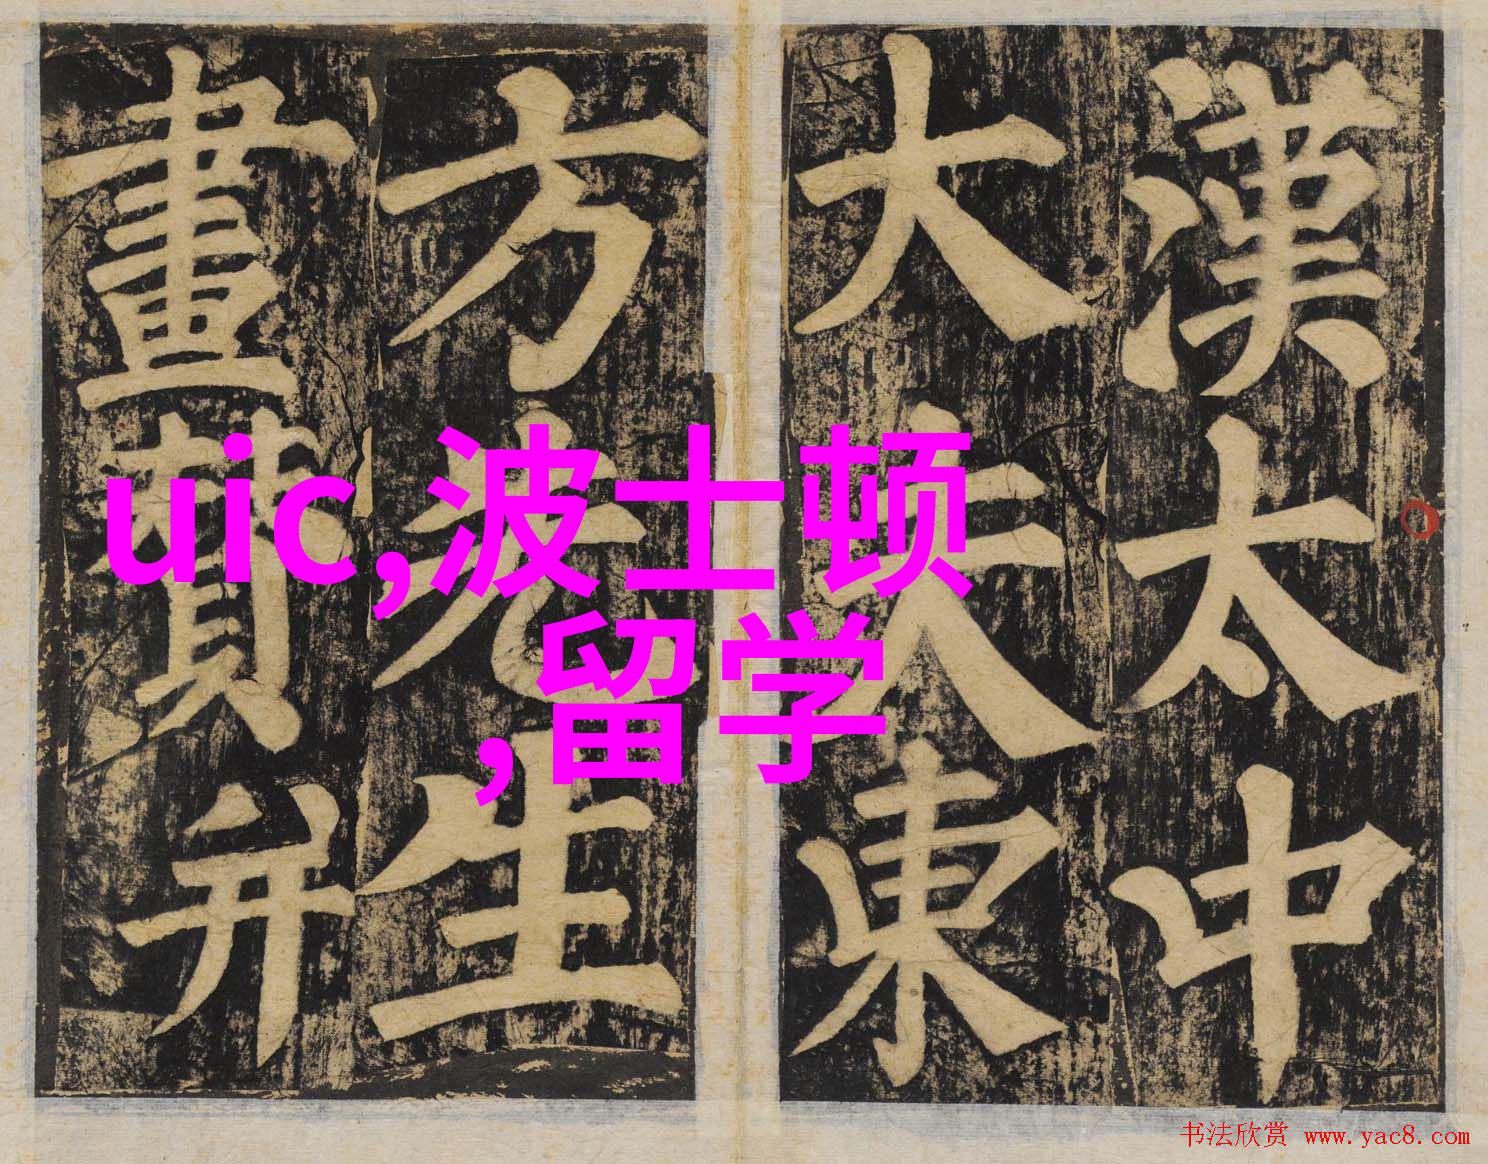 漢太中
大夫東
方先生
畫贊并
uic,波士顿
,留学
书法欣赏 www.yac8.com